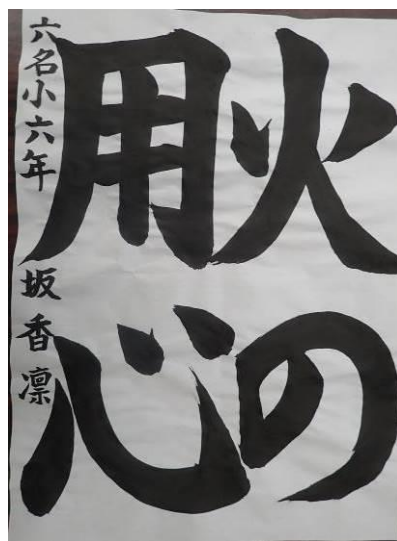 火の
用心
六名小六年 坂香凛